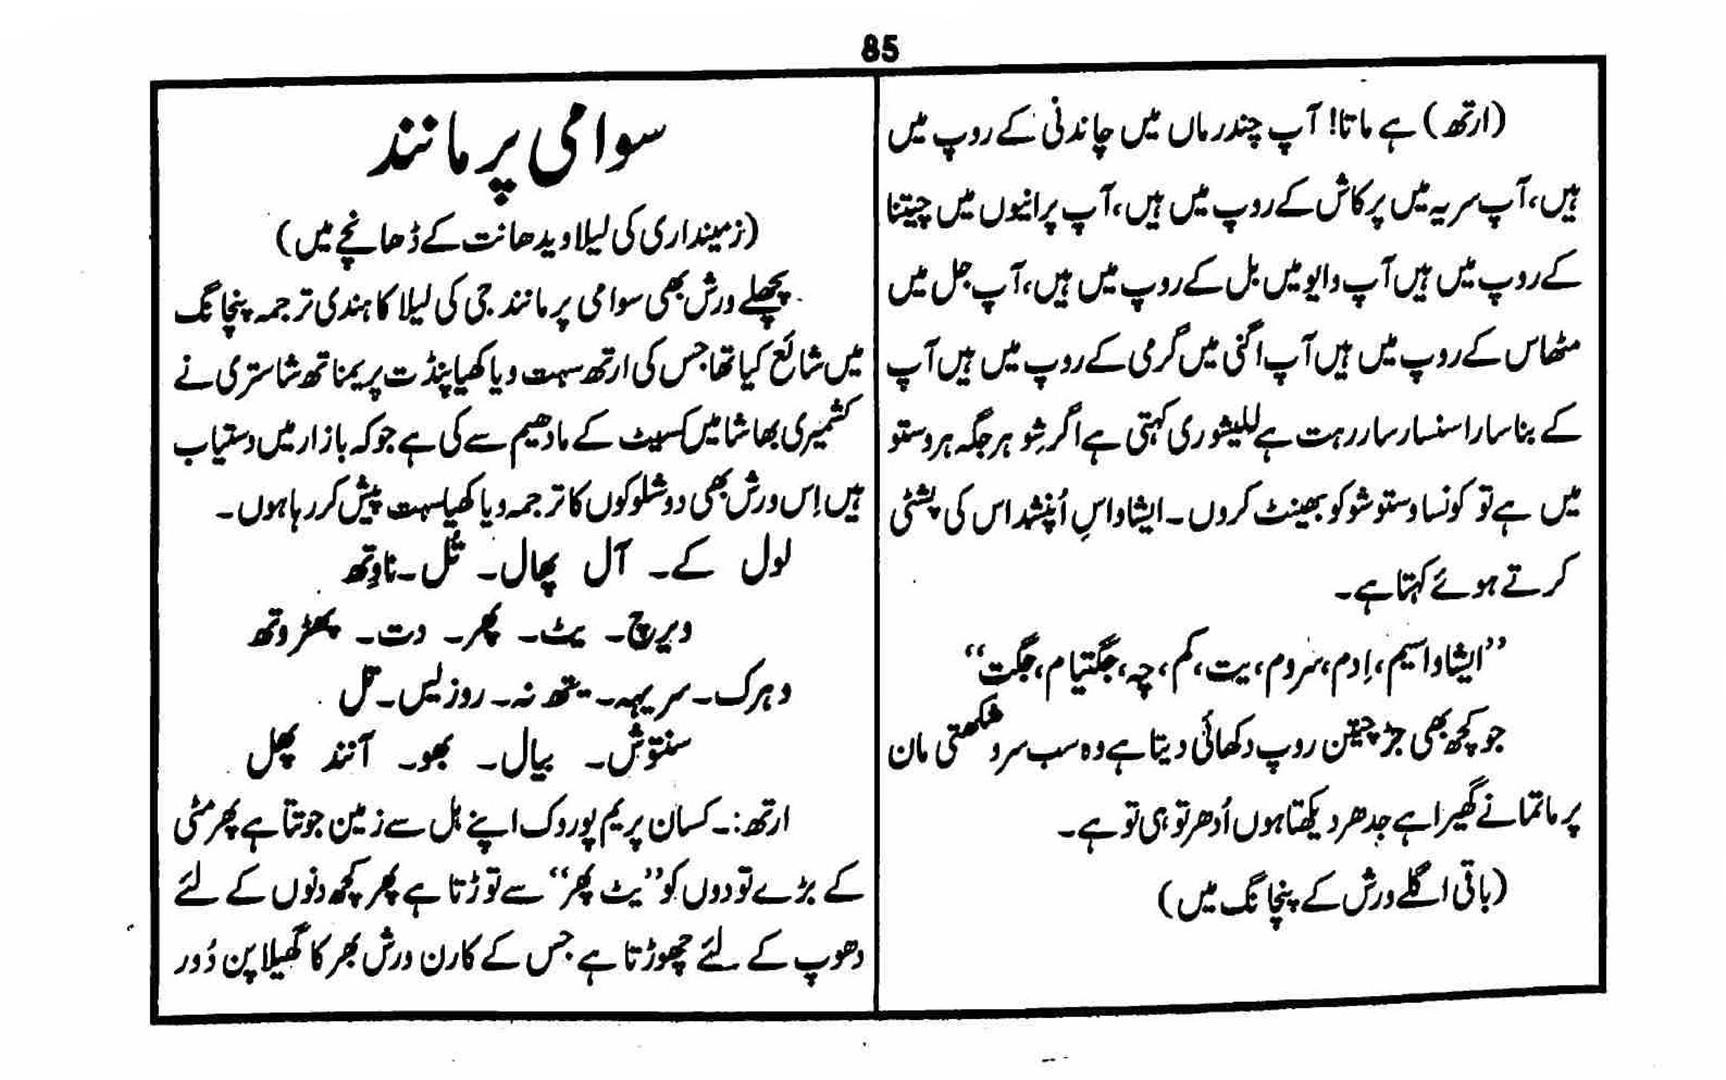 85
(ارتھ) ہے ماتا! آپ چندرماں میں چاندنی کے روپ میں
ہیں، آپ سریہ میں پرکاش کے روپ میں ہیں، آپ پرانیوں میں چیتنا
کے روپ میں ہیں آپ وایو میں بل کے روپ میں ہیں، آپ جل میں
مٹھاس کے روپ میں ہیں آپ اگنی میں گرمی کے روپ میں ہیں آپ
کے بنا سارا سنسار سار رہت ہے للیشوری کہتی ہے اگر شِو ہر جگہ ہر وستو
میں ہے تو کونسا وستو شو کو بھینٹ کروں۔ ایشاواسِ اُپنشد اس کی پشٹی
کرتے ہوئے کہتا ہے۔
”ایشاواسیم، اِدم، سروم، یت، کم، چہ، جگتیام، جگت“
جو کچھ بھی جڑ چیتن روپ دکھائی دیتا ہے وہ سب سرو شکھتی مان
پرماتما نے گھیرا ہے جدھر دیکھتا ہوں اُدھر تو ہی تو ہے۔
(باقی اگلے ورش کے پنچانگ میں)
سوامی پرمانند
(زمینداری کی لیلا ویدھانت کے ڈھانچے میں)
پچھلے ورش بھی سوامی پرمانند جی کی لیلا کا ہندی ترجمہ پنچانگ
میں شائع کیا تھا جس کی ارتھ سہت ویاکھیا پنڈت پریمناتھ شاستری نے
کشمیری بھاشا میں کسیٹ کے مادھیم سے کی ہے جو کہ بازار میں دستیاب
ہیں اِس ورش بھی دو شلوکوں کا ترجمہ ویاکھیا سہت پیش کر رہا ہوں۔
لول کے۔ آل پھال۔ تُل۔ ناوِتھ
ویرچ۔ یٹ۔ پھر۔ دت۔ پھٹروتھ
وہرک۔ سریہہ۔ یتھ نہ۔ روزلیس۔ تل
سنتوش۔ بیال۔ بھو۔ آنند پھل
ارتھ:۔ کسان پریم پوروک اپنے ہل سے زمین جوتتا ہے پھر مٹی
کے بڑے تودوں کو ”یٹ پھر“ سے توڑتا ہے پھر کچھ دنوں کے لئے
دھوپ کے لئے چھوڑتا ہے جس کے کارن ورش بھر کا گھیلا پن دُور